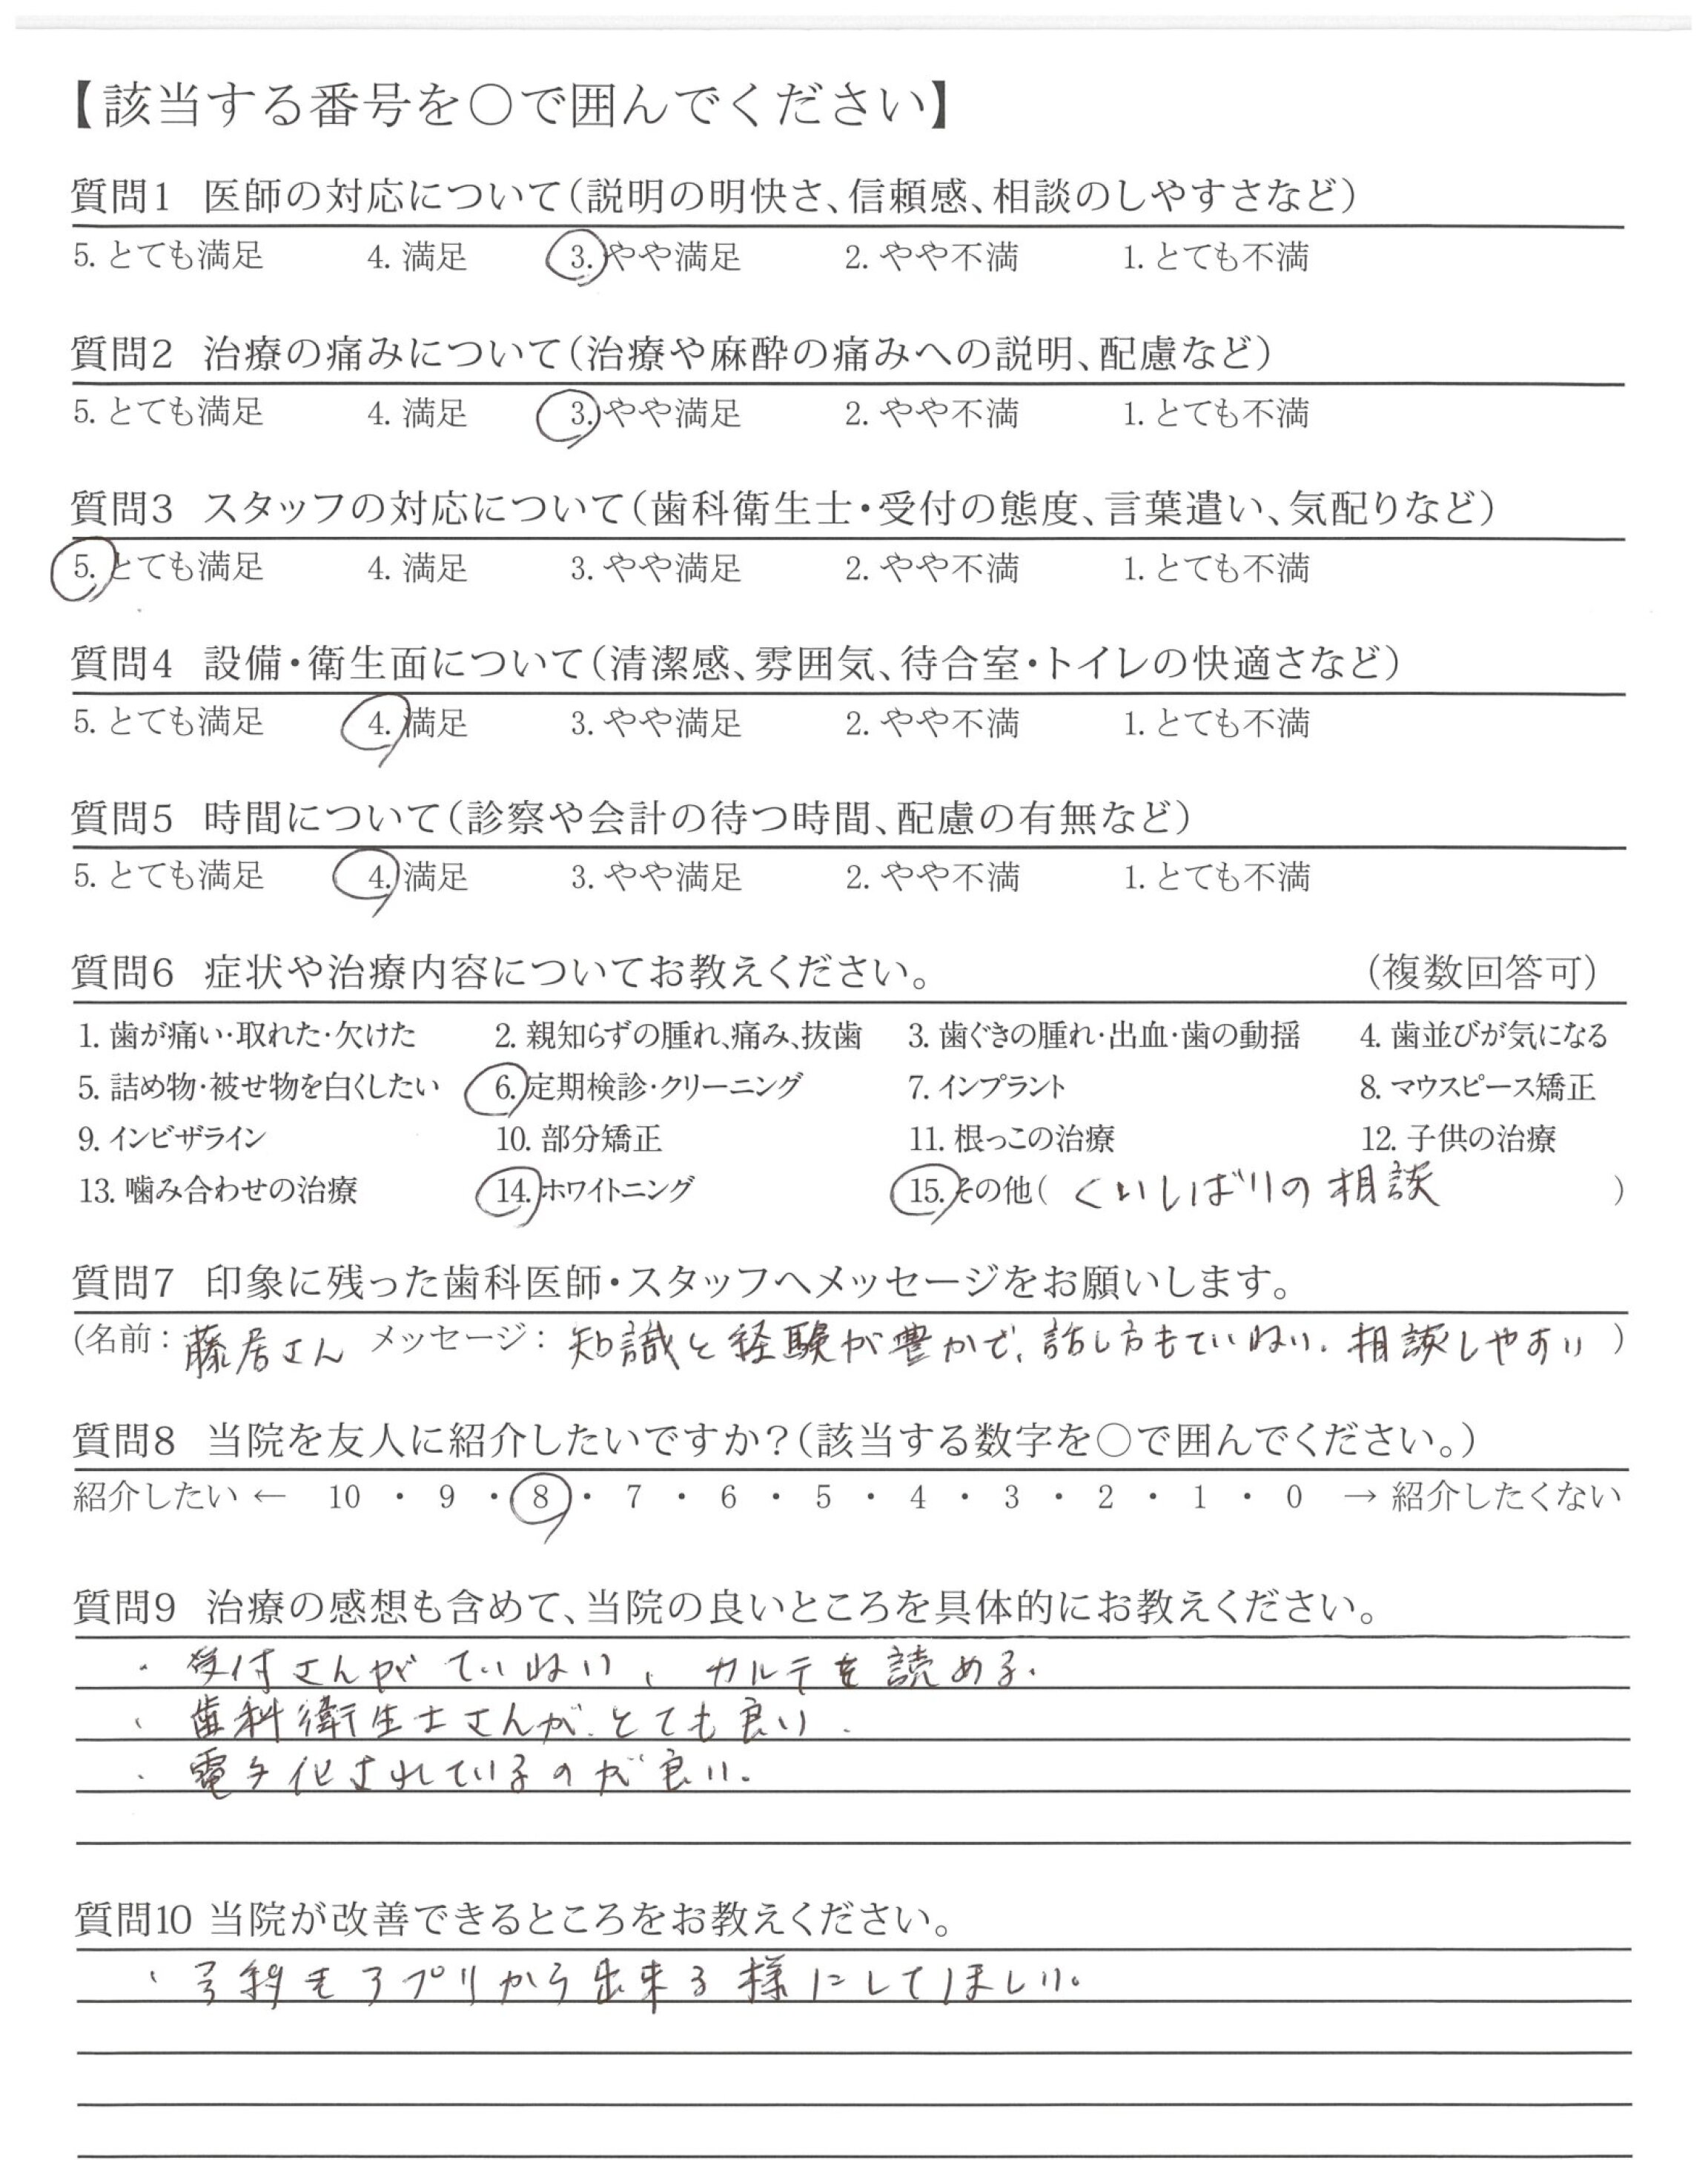 【該当する番号を○で囲んでください】
質問1 医師の対応について(説明の明快さ、信頼感、相談のしやすさなど)
5. とても満足 4. 満足 3. やや満足 2. やや不満 1. とても不満
質問2 治療の痛みについて(治療や麻酔の痛みへの説明、配慮など)
5. とても満足 4. 満足 3. やや満足 2. やや不満 1. とても不満
質問3 スタッフの対応について(歯科衛生士・受付の態度、言葉遣い、気配りなど)
5. とても満足 4. 満足 3. やや満足 2. やや不満 1. とても不満
質問4 設備・衛生面について(清潔感、雰囲気、待合室・トイレの快適さなど)
5. とても満足 4. 満足 3. やや満足 2. やや不満 1. とても不満
質問5 時間について(診察や会計の待つ時間、配慮の有無など)
5. とても満足 4. 満足 3. やや満足 2. やや不満 1. とても不満
質問6 症状や治療内容についてお教えください。 (複数回答可)
1. 歯が痛い・取れた・欠けた 2. 親知らずの腫れ、痛み、抜歯 3. 歯ぐきの腫れ・出血・歯の動揺 4. 歯並びが気になる
5. 詰め物・被せ物を白くしたい 6. 定期検診・クリーニング 7. インプラント 8. マウスピース矯正
9. インビザライン 10. 部分矯正 11. 根っこの治療 12. 子供の治療
13. 噛み合わせの治療 14. ホワイトニング 15. その他( くいしばりの相談 )
質問7 印象に残った歯科医師・スタッフへメッセージをお願いします。
(名前: 藤居さん メッセージ: 知識と経験が豊かで、話し方もていねい. 相談しやすい )
質問8 当院を友人に紹介したいですか?(該当する数字を○で囲んでください。)
紹介したい ← 10 ・ 9 ・ 8 ・ 7 ・ 6 ・ 5 ・ 4 ・ 3 ・ 2 ・ 1 ・ 0 → 紹介したくない
質問9 治療の感想も含めて、当院の良いところを具体的にお教えください。
・ 受付さんがていねい、カルテを読める.
・ 歯科衛生士さんが、とても良い.
・ 電子化されているのが良い.
質問10 当院が改善できるところをお教えください。
・ もアプリから出来る様にしてほしい。